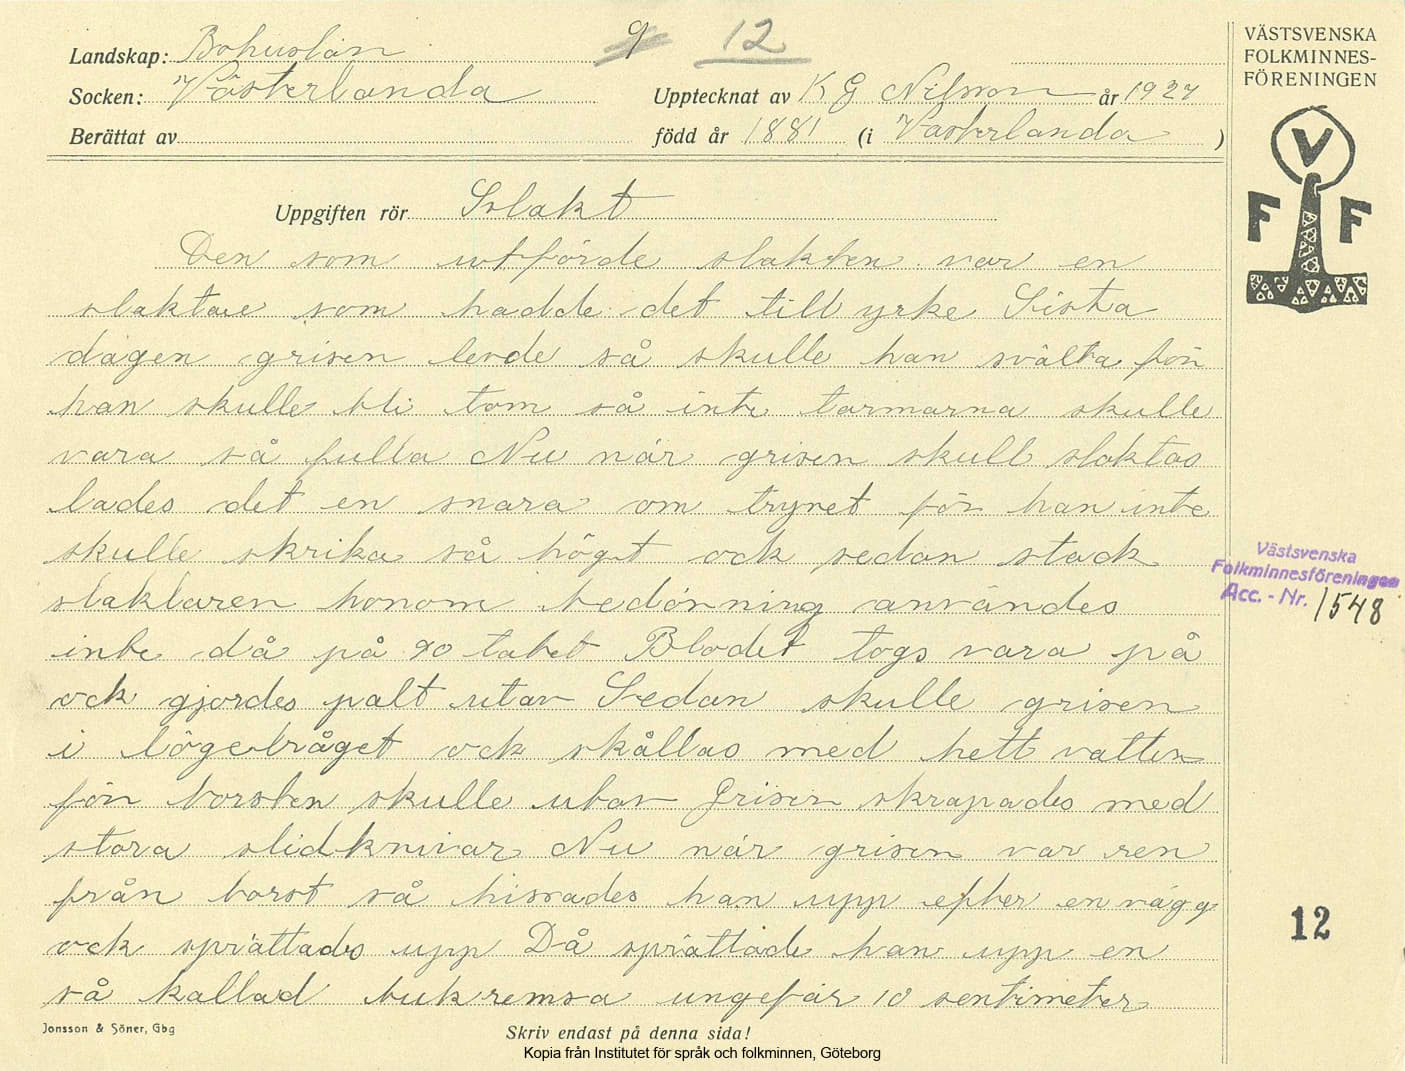 Landskap: Bohuslän
9 12
Socken: Västerlanda
Upptecknat av K G Nilsson år 1927
Berättat av
född år 1881 (i Västerlanda)
Uppgiften rör Slakt
Den som utförde slakten var en
slaktare som hadde det till yrke Sista
dagen grisen levde så skulle han svälta för
han skulle bli tom så inte tarmarna skulle
vara så fulla Nu när grisen skull slaktas
lades det en snara om trynet för han inte
skulle skrika så högt ock sedan stack
slaktaren honom bedövning användes
inte då på 90 talet Blodet togs vara på
ock gjordes palt utav Sedan skulle grisen
i lögetråget ock skållas med hett vatten
för borsten skulle utav Grisen skrapades med
stora slidknivar Nu när grisen var ren
från borst så hissades han upp efter en vägg
ock sprättades upp Då sprättade han upp en
så kallad bukremsa ungefär 10 sentimeter
Jonsson & Söner, Gbg
Skriv endast på denna sida!
Kopia från Institutet för språk och folkminnen, Göteborg
VÄSTSVENSKA
FOLKMINNES-
FÖRENINGEN
V
F F
Västsvenska
Folkminnesföreningen
Acc. - Nr. 1548
12